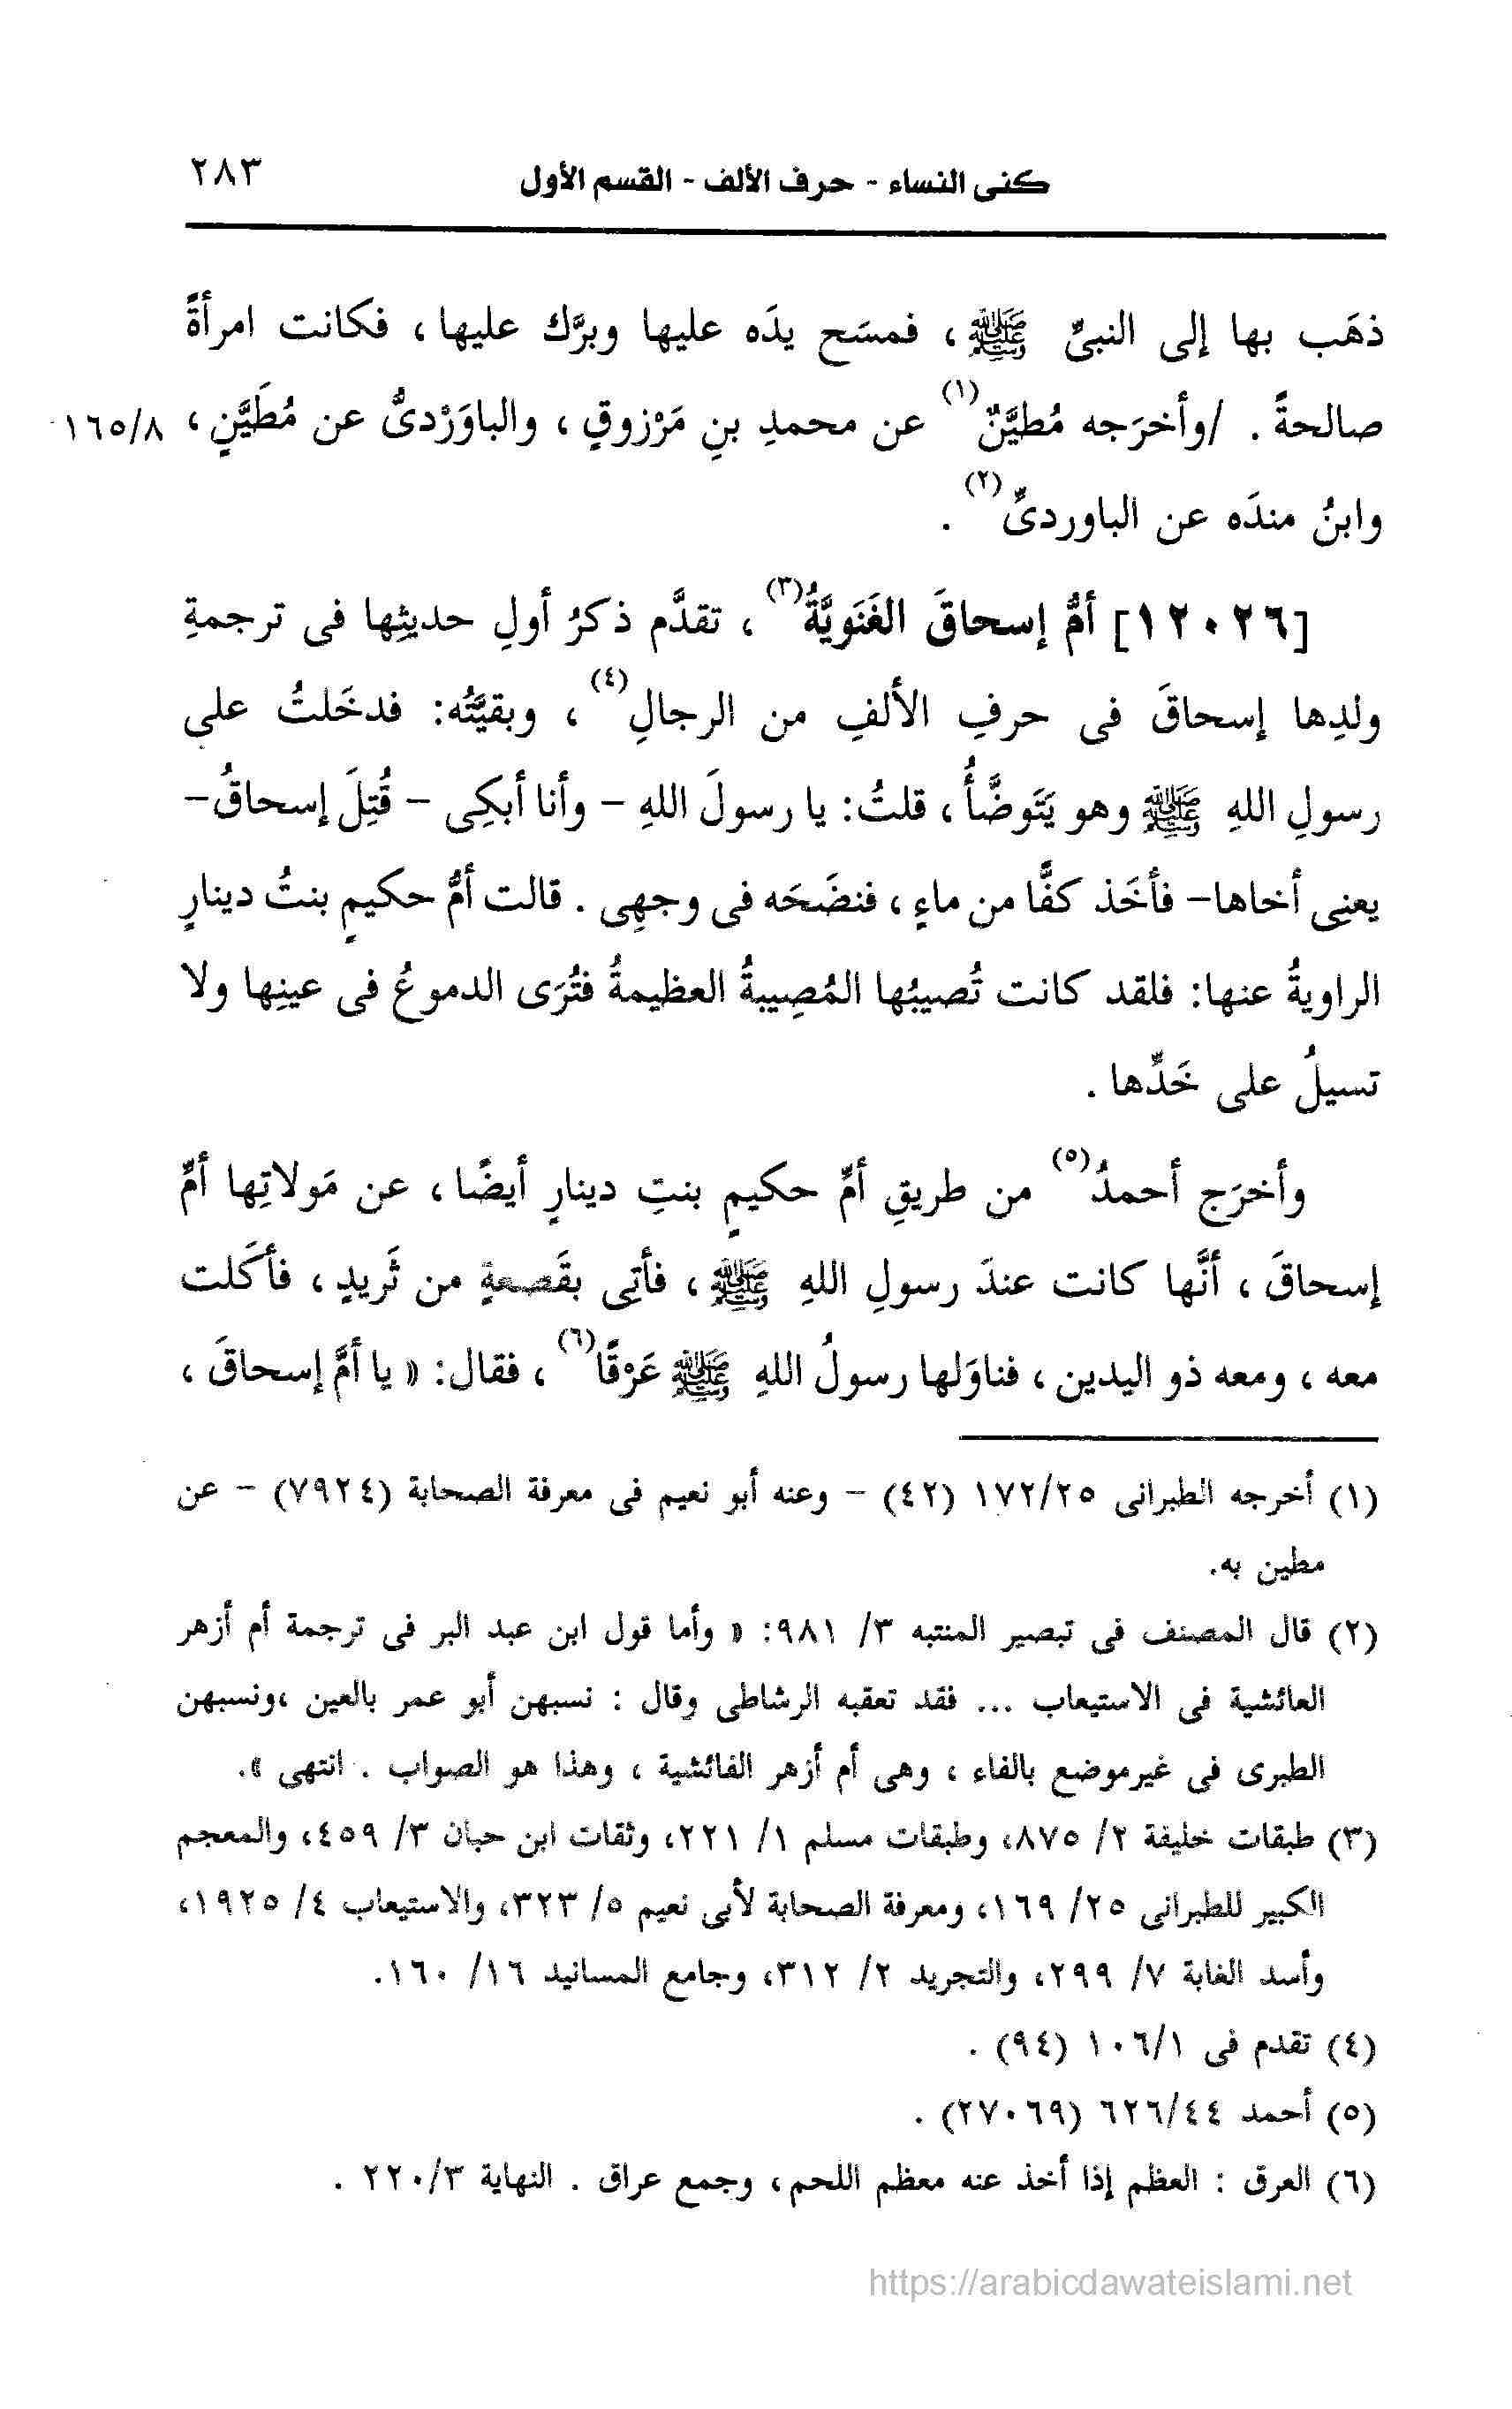 كنى النساء - حرف الألف - القسم الأول ٢٨٣
ذهَب بها إلى النبىِّ ﷺ ، فمسَح يدَه عليها وبرَّك عليها ، فكانت امرأةً
صالحةً . /وأخرَجه مُطيَّنٌ(١) عن محمدِ بنِ مَرْزوقٍ ، والباوَرْدىُّ عن مُطَيَّنٍ ، ١٦٥/٨
وابنُ مندَه عن الباوردىِّ(٢) .
[١٢٠٢٦] أمُّ إسحاقَ الغَنَوِيَّةُ(٣) ، تقدَّم ذكرُ أولِ حديثِها فى ترجمةِ
ولدِها إسحاقَ فى حرفِ الألفِ من الرجالِ(٤) ، وبقيَّتُه: فدخَلتُ على
رسولِ اللهِ ﷺ وهو يَتَوضَّأُ ، قلتُ: يا رسولَ اللهِ - وأنا أبكِى - قُتِلَ إسحاقُ-
يعنِى أخاها- فأخَذ كفًّا من ماءٍ ، فنضَحَه فى وجهِى . قالت أمُّ حكيمٍ بنتُ دينارٍ
الراويةُ عنها: فلقد كانت تُصيبُها المُصِيبةُ العظيمةُ فتُرَى الدموعُ فى عينِها ولا
تسيلُ على خَدِّها .
وأخرَج أحمدُ(٥) من طريقِ أمِّ حكيمٍ بنتِ دينارٍ أيضًا ، عن مَولاتِها أمِّ
إسحاقَ ، أنَّها كانت عندَ رسولِ اللهِ ﷺ ، فأتِى بقَصعةٍ من ثَريدٍ ، فأكَلت
معه ، ومعه ذو اليدين ، فناوَلها رسولُ اللهِ ﷺ عَرْقًا(٦) ، فقال: « يا أمَّ إسحاقَ ،
(١) أخرجه الطبرانى ١٧٢/٢٥ (٤٢) - وعنه أبو نعيم فى معرفة الصحابة (٧٩٢٤) - عن
مطين به.
(٢) قال المصنف فى تبصير المنتبه ٣/ ٩٨١: « وأما قول ابن عبد البر فى ترجمة أم أزهر
العائشية فى الاستيعاب ... فقد تعقبه الرشاطى وقال : نسبهن أبو عمر بالعين ،ونسبهن
الطبرى فى غيرموضع بالفاء ، وهى أم أزهر الفائشية ، وهذا هو الصواب . انتهى ».
(٣) طبقات خليفة ٢/ ٨٧٥، وطبقات مسلم ١/ ٢٢١، وثقات ابن حبان ٣/ ٤٥٩، والمعجم
الكبير للطبرانى ٢٥/ ١٦٩، ومعرفة الصحابة لأبى نعيم ٥/ ٣٢٣، والاستيعاب ٤/ ١٩٢٥،
وأسد الغابة ٧/ ٢٩٩، والتجريد ٢/ ٣١٢، وجامع المسانيد ١٦/ ١٦٠.
(٤) تقدم فى ١٠٦/١ (٩٤) .
(٥) أحمد ٦٢٦/٤٤ (٢٧٠٦٩) .
(٦) العرق : العظم إذا أخذ عنه معظم اللحم ، وجمع عراق . النهاية ٢٢٠/٣ .
https://arabicdawateislami.net